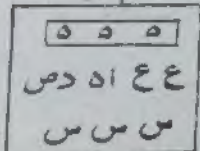 ه ه ه
ع ع اه دص
س س س